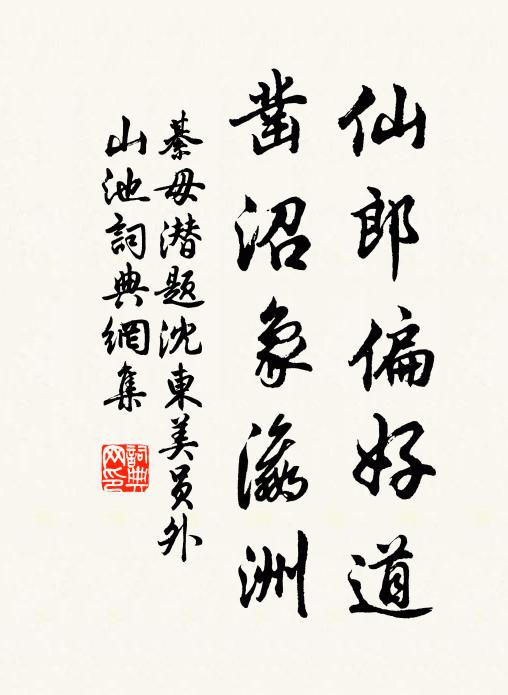 仙郎偏好道
凿沼象瀛洲
綦毋潜题沈東美员外
山池詞典網集
詞典网印